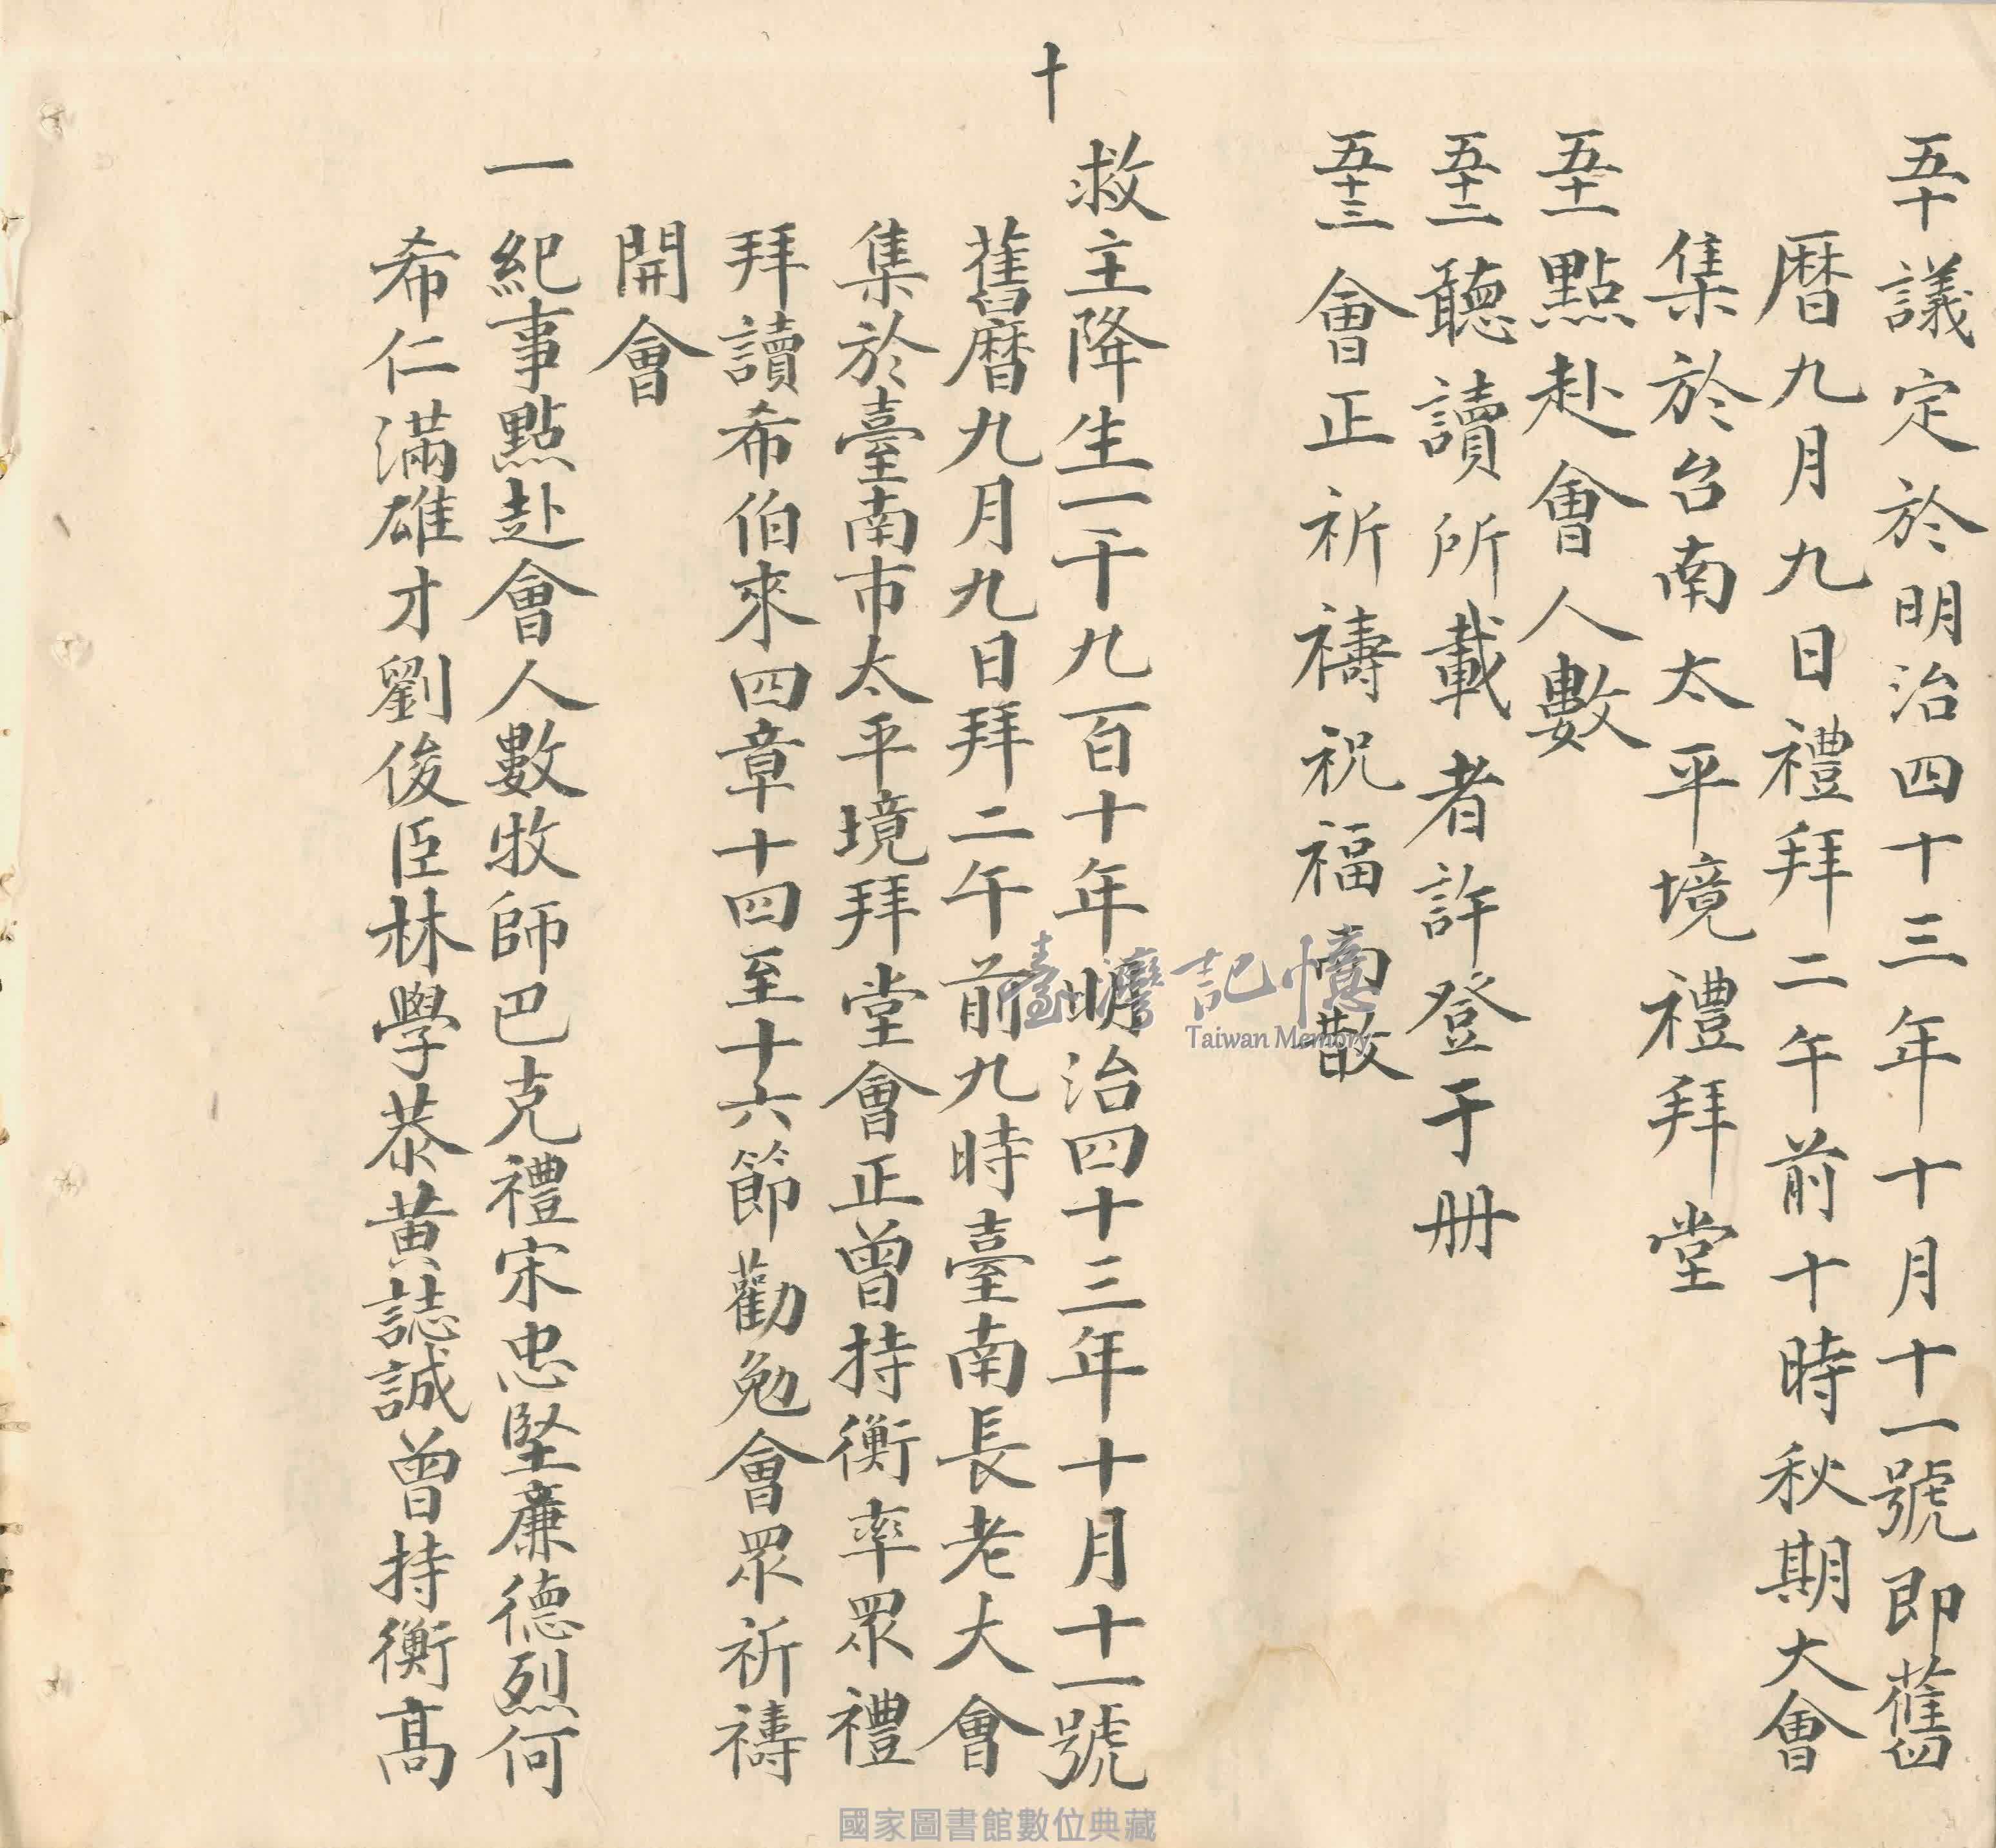 五十議定於明治四十三年十月十一號即舊
曆九月九日禮拜二午前十時秋期大會
集於台南太平境禮拜堂
五十一點赴會人數
五十二聽讀所載者許登于冊
五十三會正祈禱祝福而散
十
救主降生一千九百十年明治四十三年十月十一號
舊曆九月九日拜二午前九時臺南長老大會
集於臺南市太平境拜堂會正曾持衡率眾禮
拜讀希伯來四章十四至十六節勸勉會眾祈禱
開會
一紀事點赴會人數牧師巴克禮宋忠堅廉德烈何
希仁滿雄才劉俊臣林學恭黃誌誠曾持衡高
臺灣記憶
Taiwan Memory
國家圖書館數位典藏